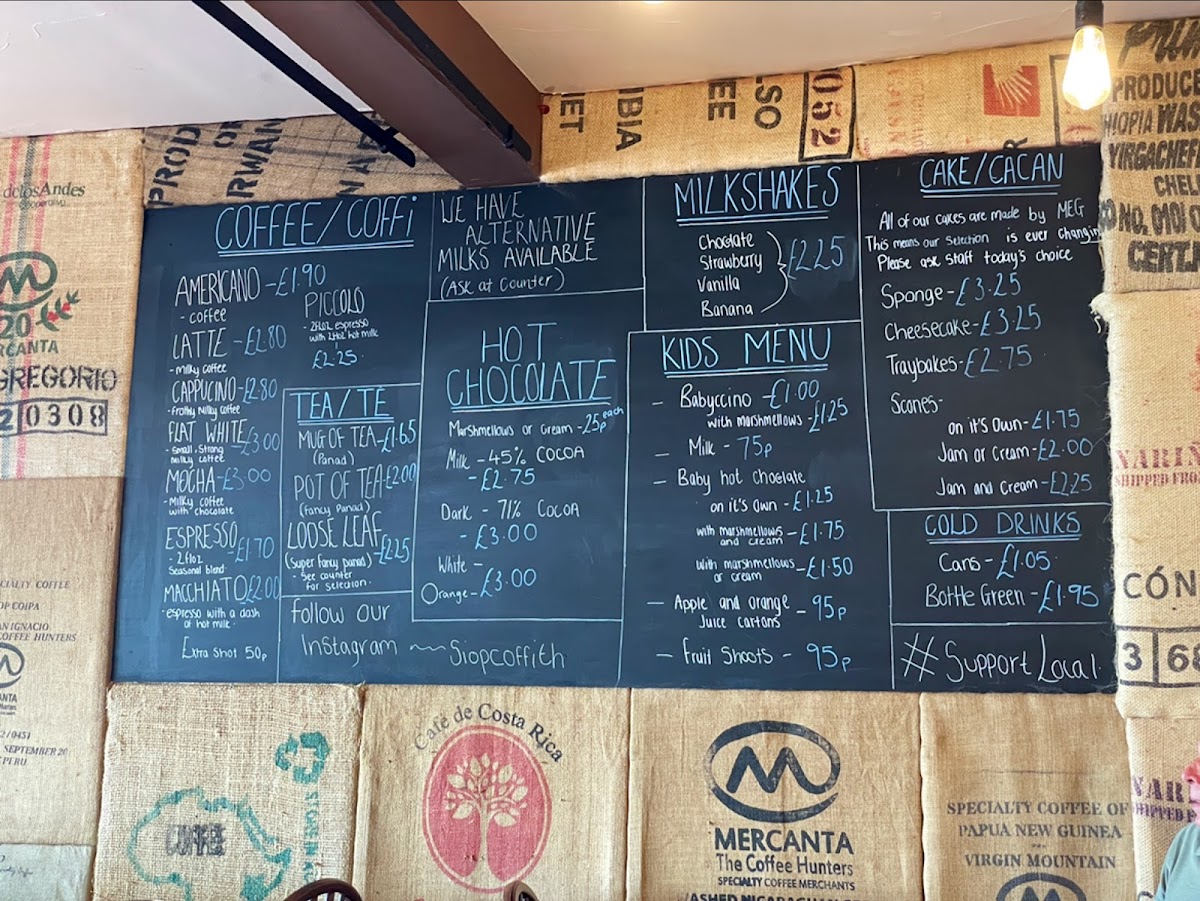 COFFEE/COFFi
AMERICANO - £1.90
- coffee
LATTE - £2.80
- Milky coffee
CAPPUCINO - £2.80
- Frothy Milky coffee
FLAT WHITE - £3.00
- Small, Strong
Milky coffee
MOCHA - £3.00
- Milky coffee
with chocolate
ESPRESSO - £1.70
- 2floz
Seasonal blend
MACCHIATO £2.00
- espresso with a dash
of hot milk
Extra Shot 50p
PICCOLO
- 2floz espresso
with 2floz hot milk
£2.25
TEA/TE
MUG OF TEA - £1.65
(Panad)
POT OF TEA - £2.00
(fancy Panad)
LOOSE LEAF - £2.25
(Super fancy panad)
- See counter
for selection.
follow our
Instagram ~ Siopcoffith
WE HAVE
ALTERNATIVE
MILKS AVAILABLE
(Ask at Counter)
HOT
CHOCOLATE
Marshmellows or Cream - 25p each
Milk - 45% COCOA
- £2.75
Dark - 71% COCOA
- £3.00
White -
Orange - £3.00
MILKSHAKES
Choclate
Strawberry
Vanilla
Banana
£2.25
KIDS MENU
- Babyccino - £1.00
with marshmallows - £1.25
- Milk - 75p
- Baby hot choclate
on it's Own - £1.25
with marshmellows
and cream - £1.75
with marshmellows
or cream - £1.50
- Apple and orange
Juice cartons - 95p
- Fruit Shoots - 95p
CAKE/CACAN
All of our cakes are made by MEG
This means our selection is ever changing
Please ask staff today's choice
Sponge - £3.25
Cheesecake - £3.25
Traybakes - £2.75
Scones -
on it's Own - £1.75
Jam or Cream - £2.00
Jam and Cream - £2.25
COLD DRINKS
Cans - £1.05
Bottle Green - £1.95
# Support Local
052
PRODUCE
CAFÉ
Café de Costa Rica
COFFEE
MERCANTA
The Coffee Hunters
SPECIALTY COFFEE MERCHANTS
SPECIALTY COFFEE OF
PAPUA NEW GUINEA
VIRGIN MOUNTAIN
GREGORIO
0308
SEPTEMBER 20
PERU